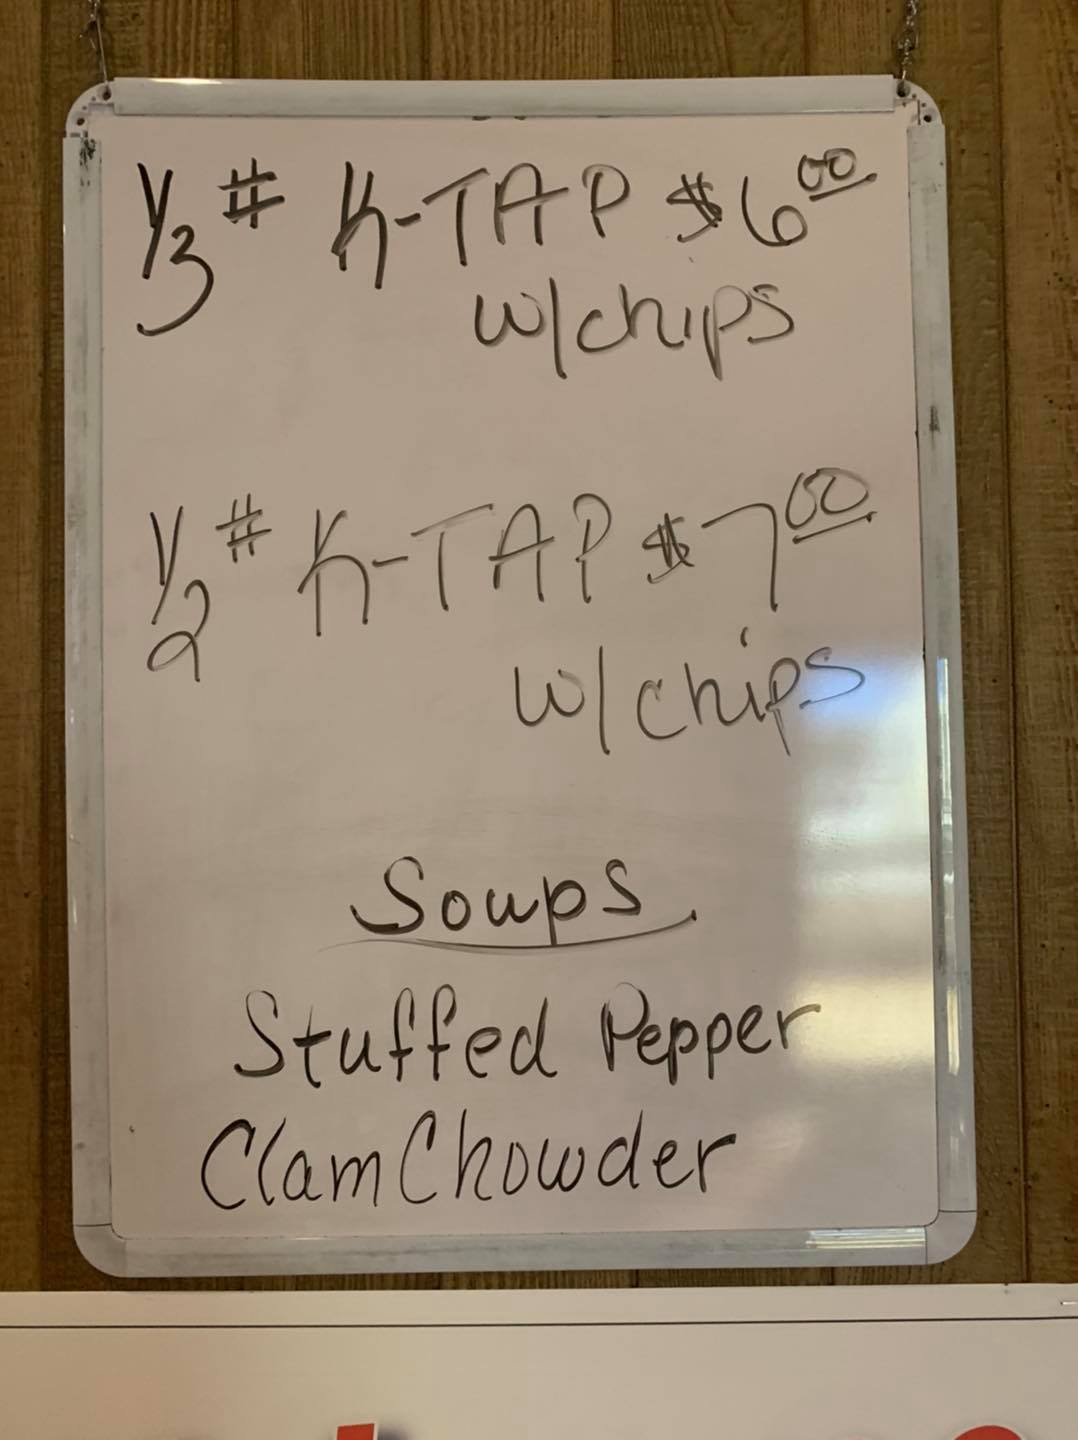 1/3 # K-TAP $6.00
w/chips
1/2 # K-TAP $7.00
w/chips
Soups
Stuffed Pepper
Clam Chowder